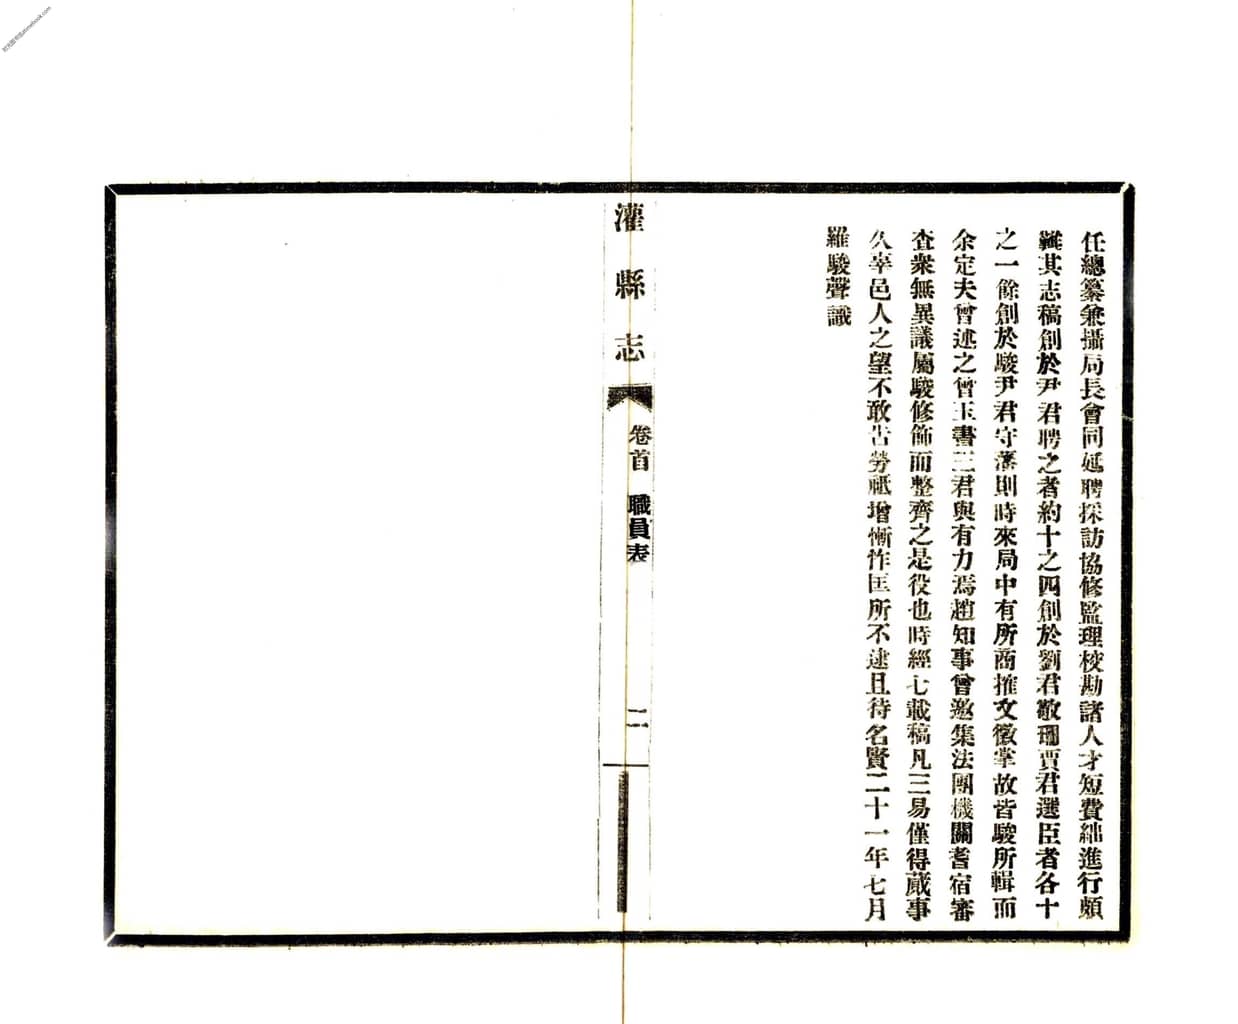 任總纂兼攝局長會同延聘採訪協修監理校勘諸人才短費絀進行頗
難其志稿創於尹君聘之者約十之四創於劉君敬珊賈君選臣者各十
之一餘創於駿尹君守藩則時來局中有所商搉文徵掌故皆駿所輯而
余定夫曾述之曾玉書三君與有力焉趙知事曾邀集法團機關耆宿審
查衆無異議屬駿修飾而整齊之是役也時經七載稿凡三易僅得蕆事
久辜邑人之望不敢告勞祗增慚怍匡所不逮且待名賢二十一年七月
羅駿聲識
灌縣志
卷首 職員表
二